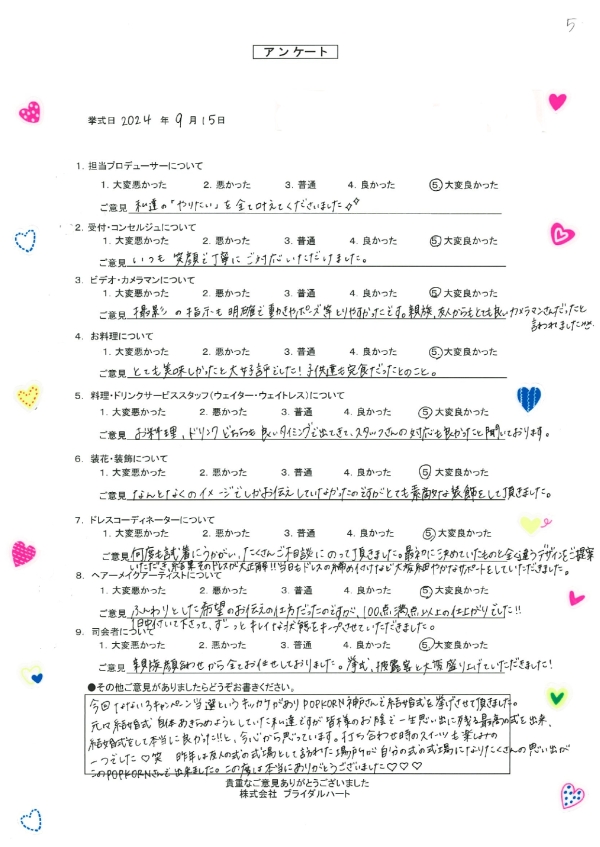 5
アンケート
挙式日 2024 年 9 月 15 日
1. 担当プロデューサーについて
1. 大変悪かった 2. 悪かった 3. 普通 4. 良かった ⑤ 大変良かった
ご意見 私達の「やりたい」を全て叶えてくださいました✧✧
2. 受付・コンセルジュについて
1. 大変悪かった 2. 悪かった 3. 普通 4. 良かった ⑤ 大変良かった
ご意見 いつも 笑顔で丁寧に ご対応いただけました。
3. ビデオ・カメラマンについて
1. 大変悪かった 2. 悪かった 3. 普通 4. 良かった ⑤ 大変良かった
ご意見 撮影の指示も明確で動きやポーズ等とりやすかったです。親族、友人からもとても良いカメラマンさんだったと
言われました
4. お料理について
1. 大変悪かった 2. 悪かった 3. 普通 4. 良かった ⑤ 大変良かった
ご意見 とても美味しかったと大好評でした!子供達も完食だったとのこと。
5. 料理・ドリンクサービススタッフ(ウェイター・ウェイトレス)について
1. 大変悪かった 2. 悪かった 3. 普通 4. 良かった ⑤ 大変良かった
ご意見 お料理、ドリンクどちらも良いタイミングで出てきて、スタッフさんの対応も良かったと聞いております。
6. 装花・装飾について
1. 大変悪かった 2. 悪かった 3. 普通 4. 良かった ⑤ 大変良かった
ご意見 なんとなくのイメージでしかお伝えしていなかったのですがとても素敵な装飾をして頂きました。
7. ドレスコーディネーターについて
1. 大変悪かった 2. 悪かった 3. 普通 4. 良かった ⑤ 大変良かった
ご意見 何度も試着にうかがい、たくさんご相談にのって頂きました。最初に決めていたものと全く違うデザインをご提案
いただき、結果そのドレスが大正解!!当日もドレスの締め付けなど大変細やかなサポートをしていただきました。
8. ヘアーメイクアーティストについて
1. 大変悪かった 2. 悪かった 3. 普通 4. 良かった ⑤ 大変良かった
ご意見 ふんわりとした希望のお伝えの仕方だったのですが、100点満点以上の仕上がりでした!!
1日中付いて下さって、ずーっとキレイな状態をキープさせていただきました。
9. 司会者について
1. 大変悪かった 2. 悪かった 3. 普通 4. 良かった ⑤ 大変良かった
ご意見 親族顔合わせから全てお任せしておりました。挙式、披露宴と大変盛り上げていただきました!
●その他ご意見がありましたらどうぞお書きください。
今回なないろキャンペーン当選というキッカケがありPOPKORN神戸さんで結婚式を挙げさせて頂きました。
元々結婚式自体あきらめようとしていた私達ですが皆様のお陰で一生思い出に残る最高の式を出来、
結婚式をして本当に良かった!!と、今心から思っています。打ち合わせ時のスイーツも楽しみの
一つでした♡笑 昨年は友人の式の式場として訪れた場所が自分の式の式場になりたくさんの思い出が
このPOPKORNさんで出来ました。この度は本当にありがとうございました♡♡♡
貴重なご意見ありがとうございました
株式会社 ブライダルハート